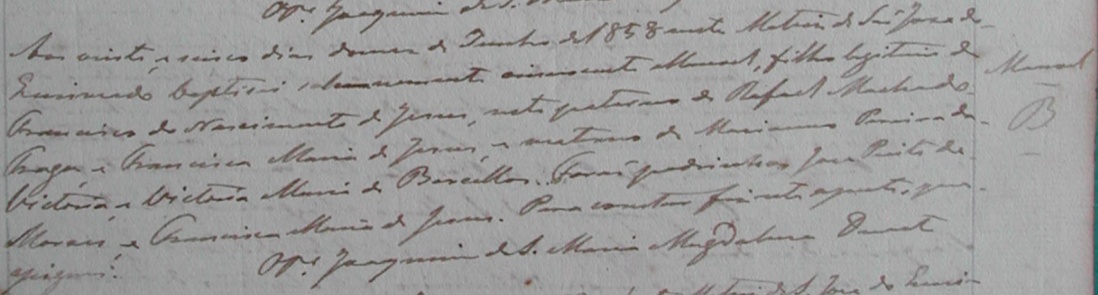 O Pe. Joaquim de S.
Aos vinte e sinco dias do mez de Junho de 1858 nesta Matriz de São Jose do
Queimado baptisei solemnemente innocente Manoel, filho legitimo de
Francisco do Nascimento de Jesus, neto paterno de Rafael Machado
Fraga e Francisca Maria de Jesus, e materno de Marianno Pereira da
Victoria e Victoria Maria de Barcellos. Forão padrinhos Jose Pinto de
Moraes e Francisca Maria de Jesus. Para constar fiz este assento, que
assignei.
O Pe. Joaquim de S. Maria Magdalena Duarte
Matriz de S. Jose do Queim
Manoel
B